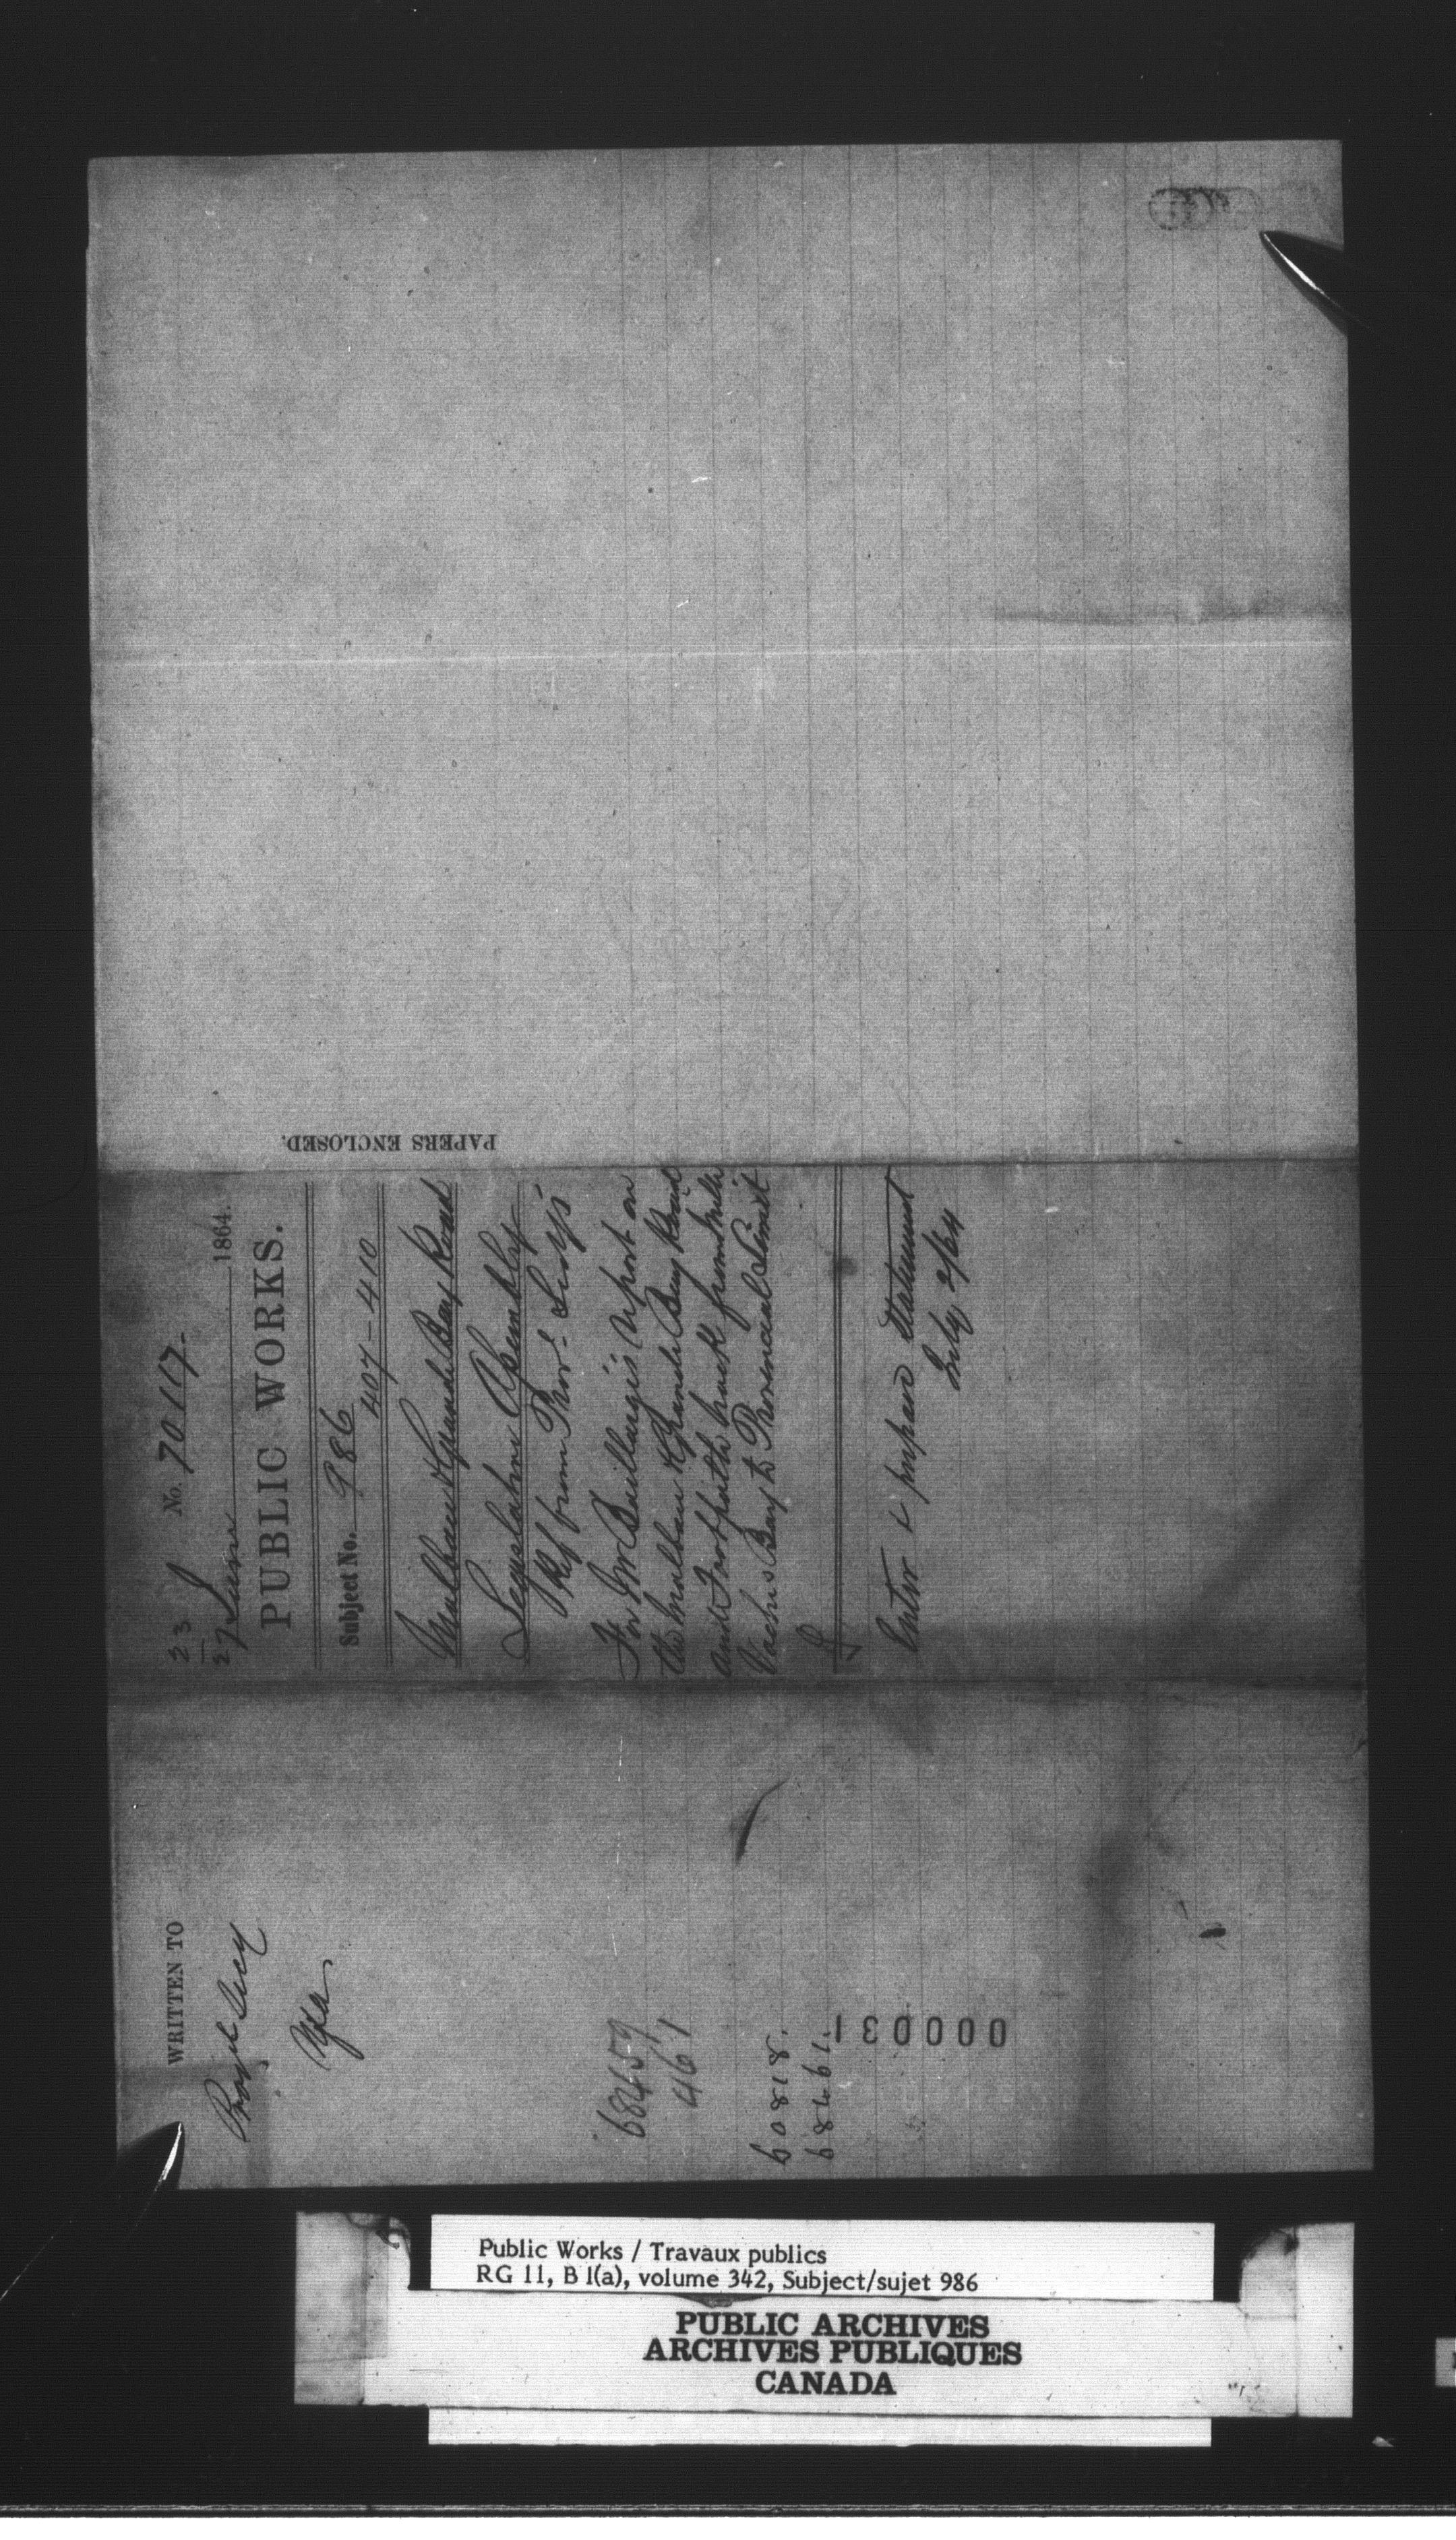 PAPERS ENCLOSED.
23
27 June 1864.
No. 70117.
PUBLIC WORKS.
Subject No. 986
407-410
Malbaie & Grande Bay Road
Legislative Assembly
Ref from Prov. Secy's
For Mr Baillairgé's report on
the Malbaie & Grande Bay Road
and Footpath back from Mille
Vaches Bay to Provincial Limit
Enter & prepare statement
July 2/64
WRITTEN TO
Provl Secy
68459
461
60818.
68461.
000031
Public Works / Travaux publics
RG 11, B 1(a), volume 342, Subject/sujet 986
PUBLIC ARCHIVES
ARCHIVES PUBLIQUES
CANADA